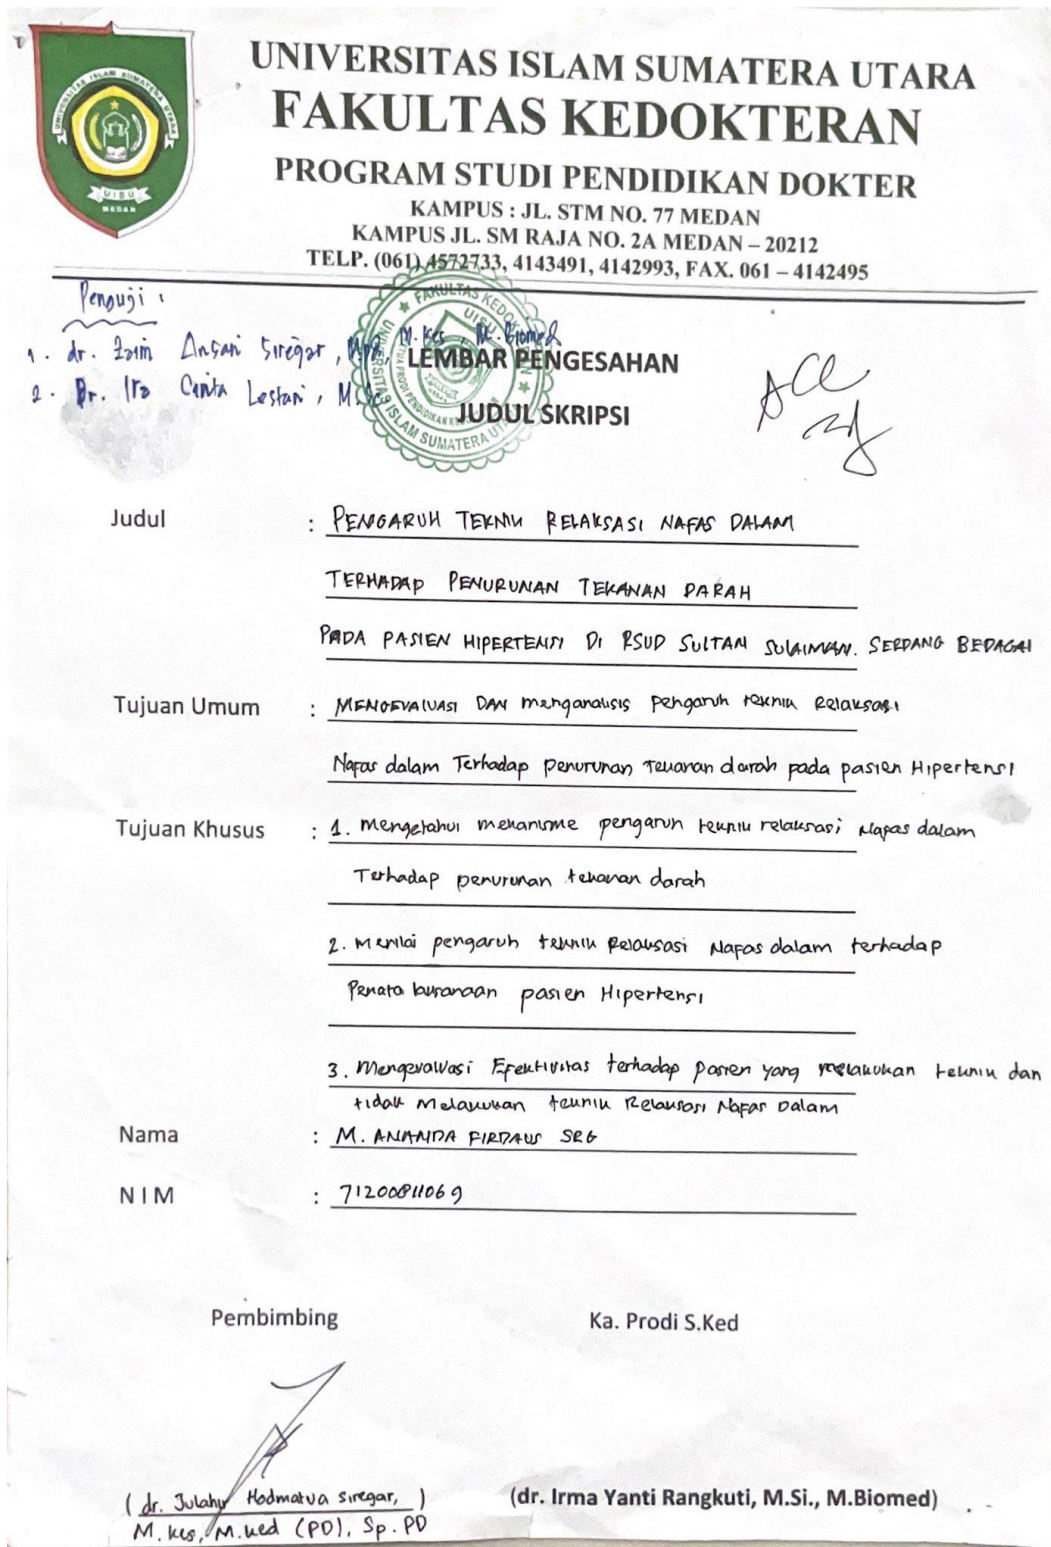 UNIVERSITAS ISLAM SUMATERA UTARA
FAKULTAS KEDOKTERAN
PROGRAM STUDI PENDIDIKAN DOKTER
KAMPUS : JL. STM NO. 77 MEDAN
KAMPUS JL. SM RAJA NO. 2A MEDAN – 20212
TELP. (061) 4572733, 4143491, 4142993, FAX. 061 – 4142495
UNIVERSITAS ISLAM SUMATERA UTARA
UISU
MEDAN
Penguji :
1. dr. Zaim Ansari Siregar, M.Kes M.Biomed
2. Dr. Ira Cinta Lestari, M.Sc
FAKULTAS KEDOKTERAN
UISU
UNIVERSITAS ISLAM SUMATERA UTARA
LEMBAR PENGESAHAN
JUDUL SKRIPSI
ACC
Judul : PENGARUH TEKNIK RELAKSASI NAFAS DALAM
TERHADAP PENURUNAN TEKANAN DARAH
PADA PASIEN HIPERTENSI DI RSUD SULTAN SULAIMAN. SERDANG BEDAGAI
Tujuan Umum : MENGEVALUASI DAN menganalisis pengaruh teknik Relaksasi
Nafas dalam Terhadap penurunan Tekanan darah pada pasien Hipertensi
Tujuan Khusus : 1. Mengetahui mekanisme pengaruh teknik relaksasi Nafas dalam
Terhadap penurunan tekanan darah
2. Menilai pengaruh teknik Relaksasi Nafas dalam terhadap
Penata laksanaan pasien Hipertensi
3. Mengevaluasi Efektivitas terhadap pasien yang melakukan teknik dan
tidak Melakukan teknik Relaksasi Nafas Dalam
Nama : M. ANANDA FIRDAUS SRG
NIM : 71200811069
Pembimbing
Ka. Prodi S.Ked
(dr. Julahir Hodmatua Siregar, )
M.kes, M.ked (PD), Sp.PD
(dr. Irma Yanti Rangkuti, M.Si., M.Biomed)